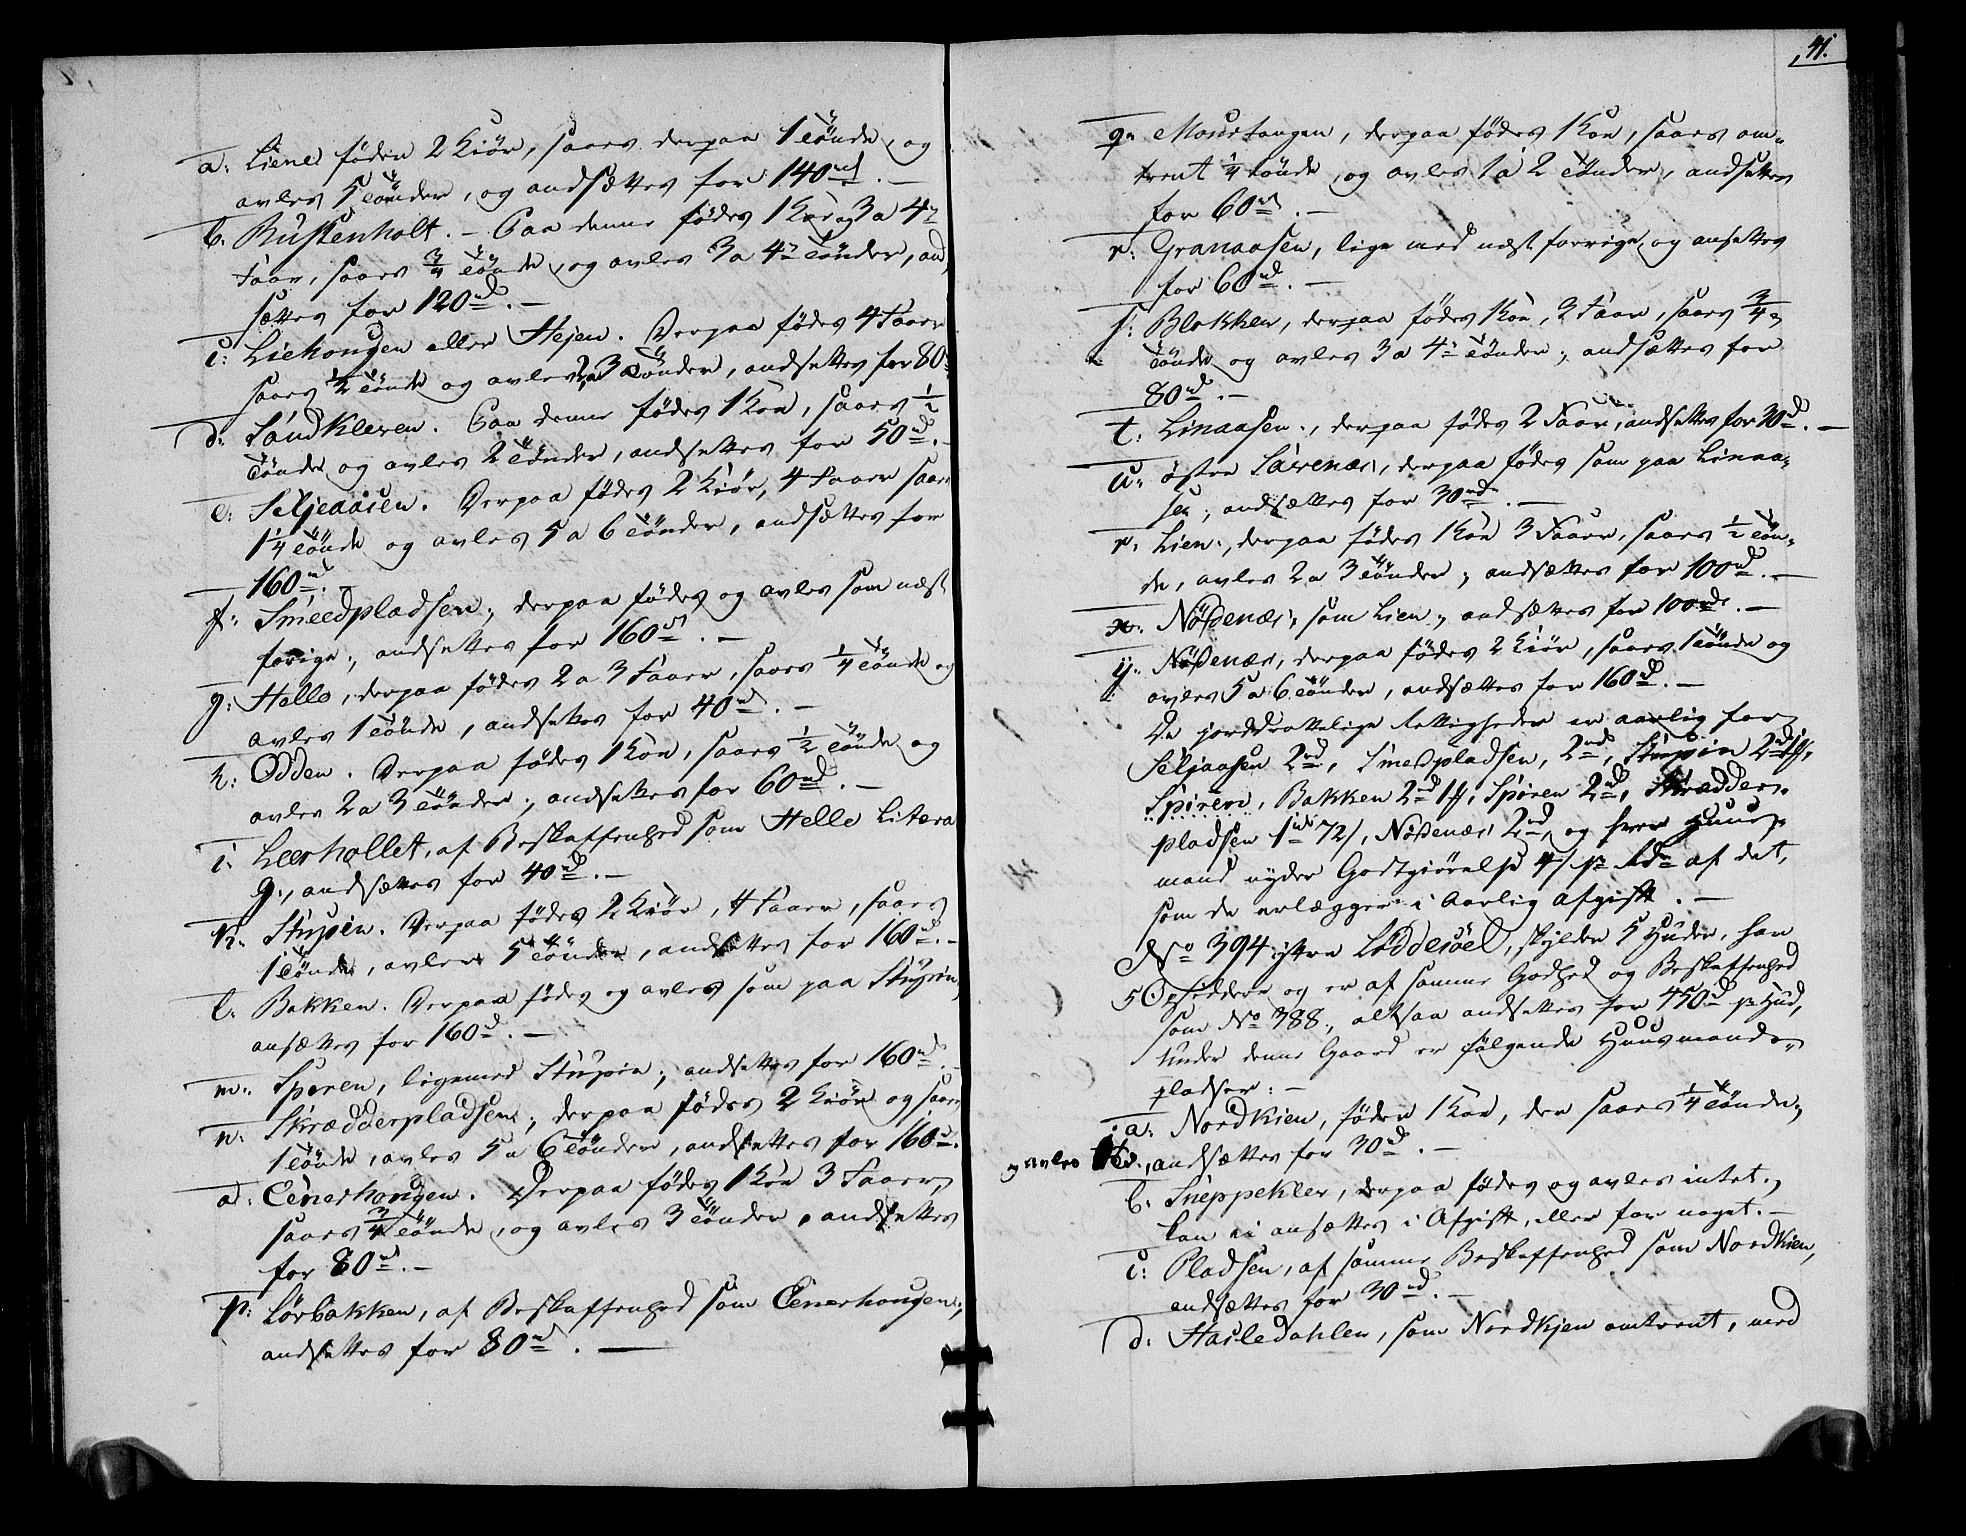 a: Liene føder 2 Kiör, saaes derpaa 1 Tönde, og
avles 5 Tönder, og andsættes for 140 rd. —
b. Rustenholt. — Paa denne fødes 1 Koe og 3 a 4re
Faar, saaes 3/4 Tönde, og avles 3 a 4re Tönder, and
sættes for 120 rd. —
c: Liehougen eller Hejen. Derpaa fødes 4 Faar
saaes 1/2 Tönde og avles 2 a 3 Tönder, andsettes for 80
d: Sandkleven. Paa denne fødes 1 Koe, saaes 1/2
Tönde og avles 2 Tönder, andsettes for 50 rd. —
e: Seljeaasen. Derpaa fødes 2 Kiör, 4 Faarer saaes
1 1/4 Tönde og avles 5 a 6 Tönder, andsættes for
160 rd. —
f: Smeedpladsen, derpaa fødes og avles som næst
forige, andsettes for 160 rd. —
g: Helle, derpaa fødes 2 a 3 Faarer, saaes 1/4 Tönde og
avles 1 Tönde, andsettes for 40 rd. —
h: Odden. Derpaa fødes 1 Koe, saaes 1/2 Tönde og
avles 2 a 3 Tönder, andsettes for 60 rd. —
i. Leerhollet, af Beskaffenhed som Helle Litera
g., andsættes for 40 rd. —
k. Stupin. Derpaa fødes 2 Kiör, 4 Faarer, saaes
1 Tönde, avler 5 Tönder, andsettes for 160 rd. —
l. Bakken. Derpaa fødes og avles som paa Stupin,
ansættes for 160 rd. —
m: Speren, ligemed Stupin, andsettes for 160 rd. —
n. Skrædderpladsen, derpaa fødes 2 Kiör og saaes
1 Tönde, avles 5 a 6 Tönder, andsettes for 160 rd.
o: Eenerhougen. Derpaa fødes 1 Koe 3 Faarer,
saaes 3/4 Tönde, og avles 3 Tönder, andsettes
for 80 rd. —
p: Lørbakken, af Beskaffenhed som Eenerhougen,
andsettes for 80 rd. —
41.
q: Mourtangen, derpaa fødes 1 Koe, saaes om-
trent 1/4 Tönde, og avles 1 a 2 Tönder, andsettes
for 60 rd. —
r: Granaasen, lige med næst forrige, og ansettes
for 60 rd. —
s: Blokken, derpaa fødes 1 Koe, 2 Faar, saaes 3/4
Tönde og avles 3 a 4re Tönder, andsættes for
80 rd. —
t: Linaasen, derpaa fødes 2 Faar, andsettes for 30 rd. —
u: østre Sævenæs, derpaa fødes som paa Linaa-
sen, andsættes for 30 rd. —
v: Lien, derpaa fødes 1 Koe 3 Faarer, saaes 1/2 Tön-
de, avles 2 a 3 Tönder, andsættes for 100 rd. —
x: Nößenæs, som Lien, andsættes for 100 rd. —
y: Nößenæs, derpaa fødes 2 Kiör, saaes 1 Tönde og
avles 5 a 6 Tönder, andsættes for 160 rd. —
De jorddrottelige Rettigheder er aarlig for
Seljaasen 2 rd, Smedpladsen, 2 rd, Stupin 2 rd
Spiren, Bakken 2 rd, Spiren 2 rd, Skrædder-
pladsen 1 rd 72 s, Nößenæs 2 rd, og hver Huus-
mand nyder Godtgiörelse 4 s pr rd af det,
som de erlægger i Aarlig Afgift. —
No 394 ytre Löddesöel, skylder 5 Huder, har
5 Opsiddere og er af samme Godhed og Beskaffenhed
som No 388, altsaa andsettes for 450 rd pr Hud,
Under denne Gaard er følgende Huusmands-
pladser: —
a: Nordkien, føder 1 Koe, der saaes 1/4 Tönde,
og avles 1 Td., andsættes for 30 rd. —
b. Sneppekler, derpaa fødes og avles intet,
kan ei ansættes i Afgift, eller for noget. —
c: Pladsen, af samme Beskaffenhed som Nordkien,
andsættes for 30 rd. —
d: Hasledahlen, som Nordkjen omtrent, med